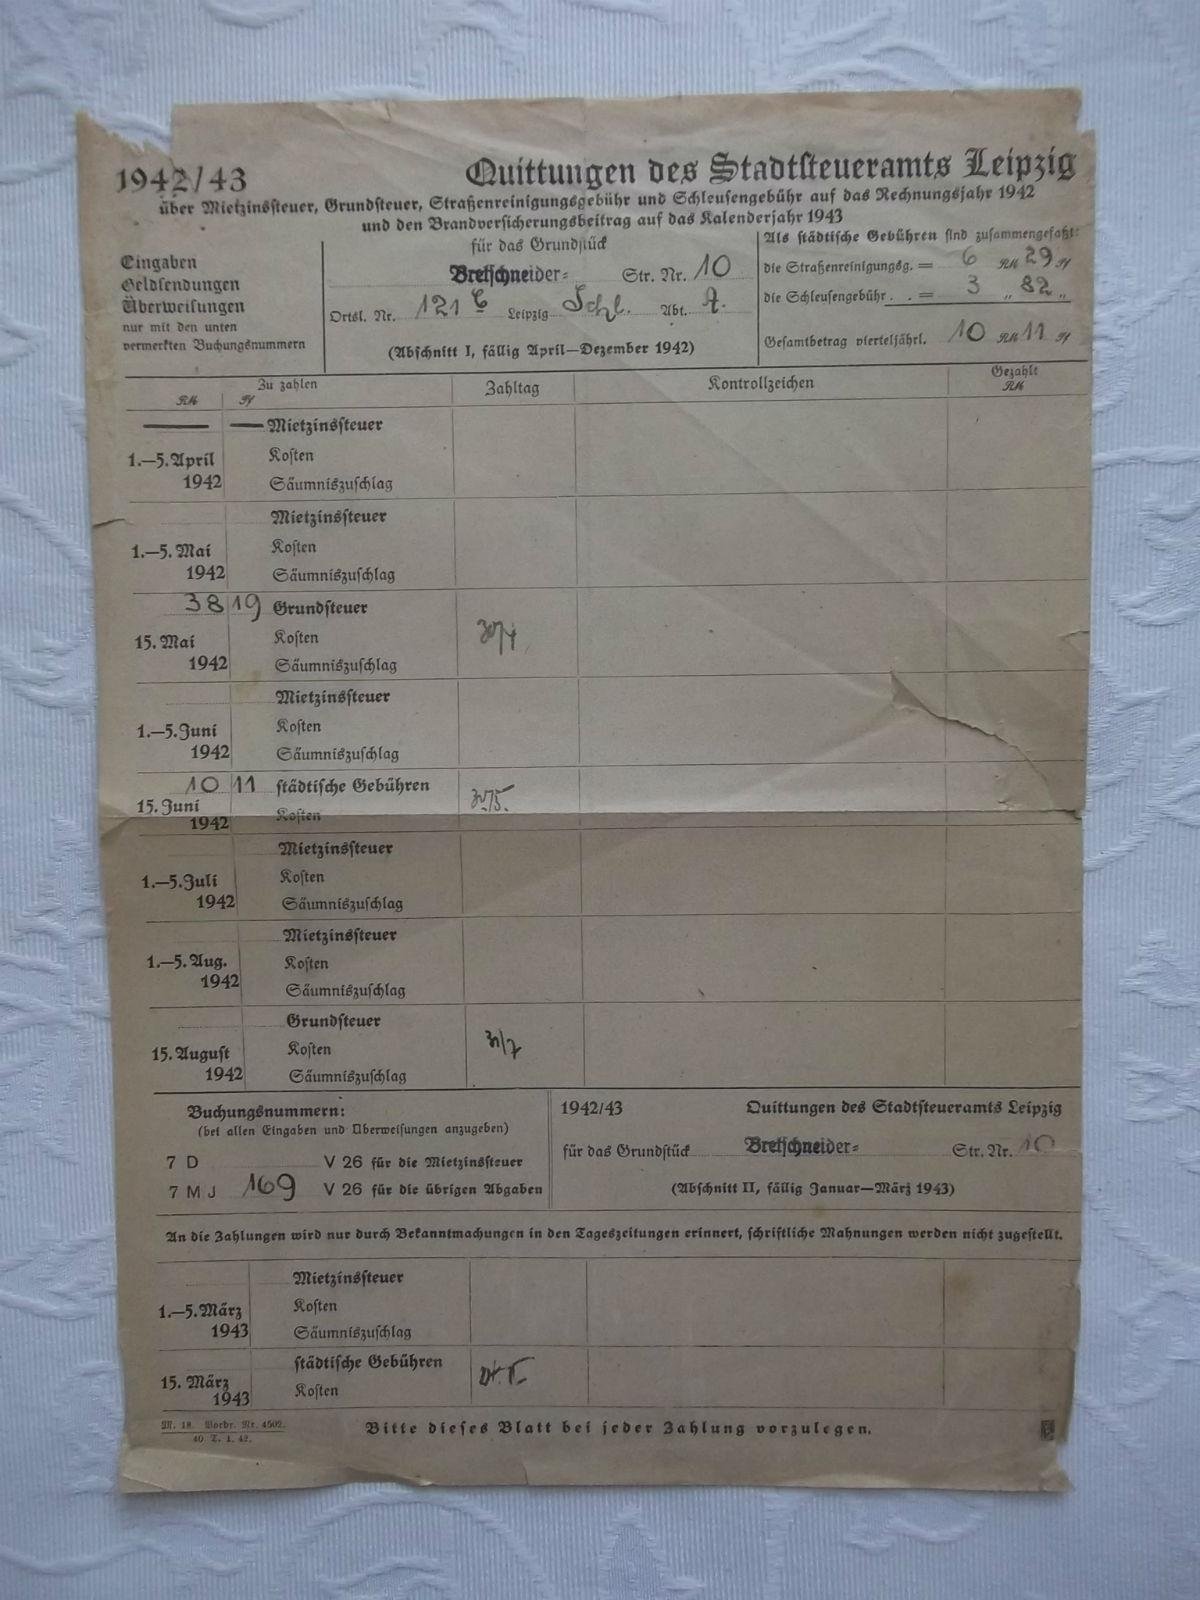 1942/43
Quittungen des Stadtsteueramts Leipzig
über Mietzinssteuer, Grundsteuer, Straßenreinigungsgebühr und Schleusengebühr auf das Rechnungsjahr 1942
und den Brandversicherungsbeitrag auf das Kalenderjahr 1943
Eingaben
Geldsendungen
Überweisungen
nur mit den unten
vermerkten Buchungsnummern
für das Grundstück
Bretschneider= Str. Nr. 10
Ortsl. Nr. 121 Leipzig Schl. Abt. A.
(Abschnitt I, fällig April—Dezember 1942)
Als städtische Gebühren sind zusammengefaßt:
die Straßenreinigungsg. = 6 RM 29 Pf
die Schleusengebühr . . = 3 „ 82 „
Gesamtbetrag vierteljährl. 10 RM 11 Pf
Zu zahlen
RM Pf
Zahltag
Kontrollzeichen
Gezahlt
RM
Mietzinssteuer
1.—5. April Kosten
1942 Säumniszuschlag
Mietzinssteuer
1.—5. Mai Kosten
1942 Säumniszuschlag
38 19 Grundsteuer
15. Mai Kosten 30/4
1942 Säumniszuschlag
Mietzinssteuer
1.—5. Juni Kosten
1942 Säumniszuschlag
10 11 städtische Gebühren
15. Juni
1942 Kosten
Mietzinssteuer
1.—5. Juli Kosten
1942 Säumniszuschlag
Mietzinssteuer
1.—5. Aug. Kosten
1942 Säumniszuschlag
Grundsteuer
15. August Kosten 31/7
1942 Säumniszuschlag
Buchungsnummern:
(bei allen Eingaben und Überweisungen anzugeben)
7 D V 26 für die Mietzinssteuer
7 M J 169 V 26 für die übrigen Abgaben
1942/43 Quittungen des Stadtsteueramts Leipzig
für das Grundstück Bretschneider= Str. Nr. 10
(Abschnitt II, fällig Januar—März 1943)
An die Zahlungen wird nur durch Bekanntmachungen in den Tageszeitungen erinnert, schriftliche Mahnungen werden nicht zugestellt.
Mietzinssteuer
1.—5. März Kosten
1943 Säumniszuschlag
städtische Gebühren
15. März Kosten
1943
M. 18. Vordr. Nr. 4502.
40 T. 1. 42.
Bitte dieses Blatt bei jeder Zahlung vorzulegen.